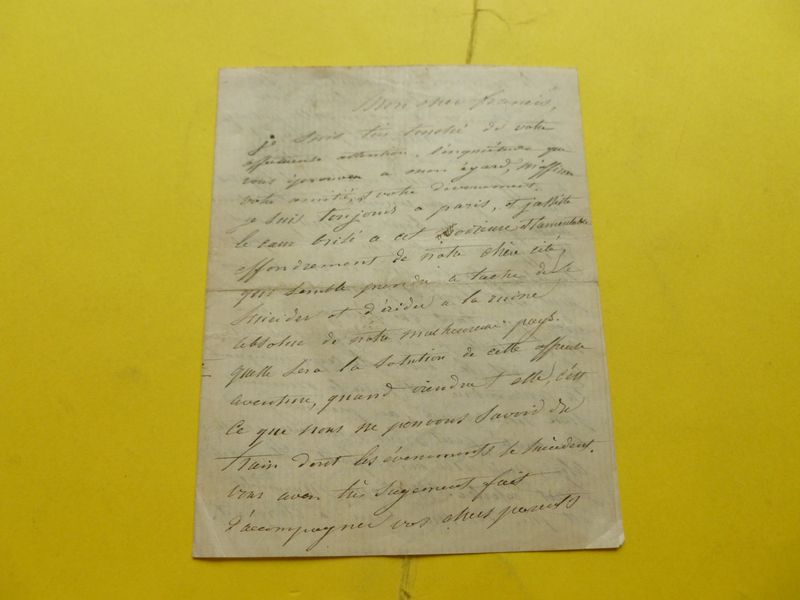 Mon cher Francis,
je suis très touché de votre
affectueuse attention. l'inquiétude que
vous éprouvez a mon égard,
votre amitié, & votre dévouement.
je suis toujours a paris, et j'assiste
le cœur brisé a cet honteux et lamentable
effondrement de notre chère cité,
qui semble prendre a tache de se
suicider et d'aider a la ruine
absolue de notre malheureux pays.
quelle sera la solution de cette affreuse
aventure, quand viendra t elle, c'est
ce que nous ne pouvons savoir du
train dont les évènements se succèdent.
vous avez très sagement fait
d'accompagner vos chers parents